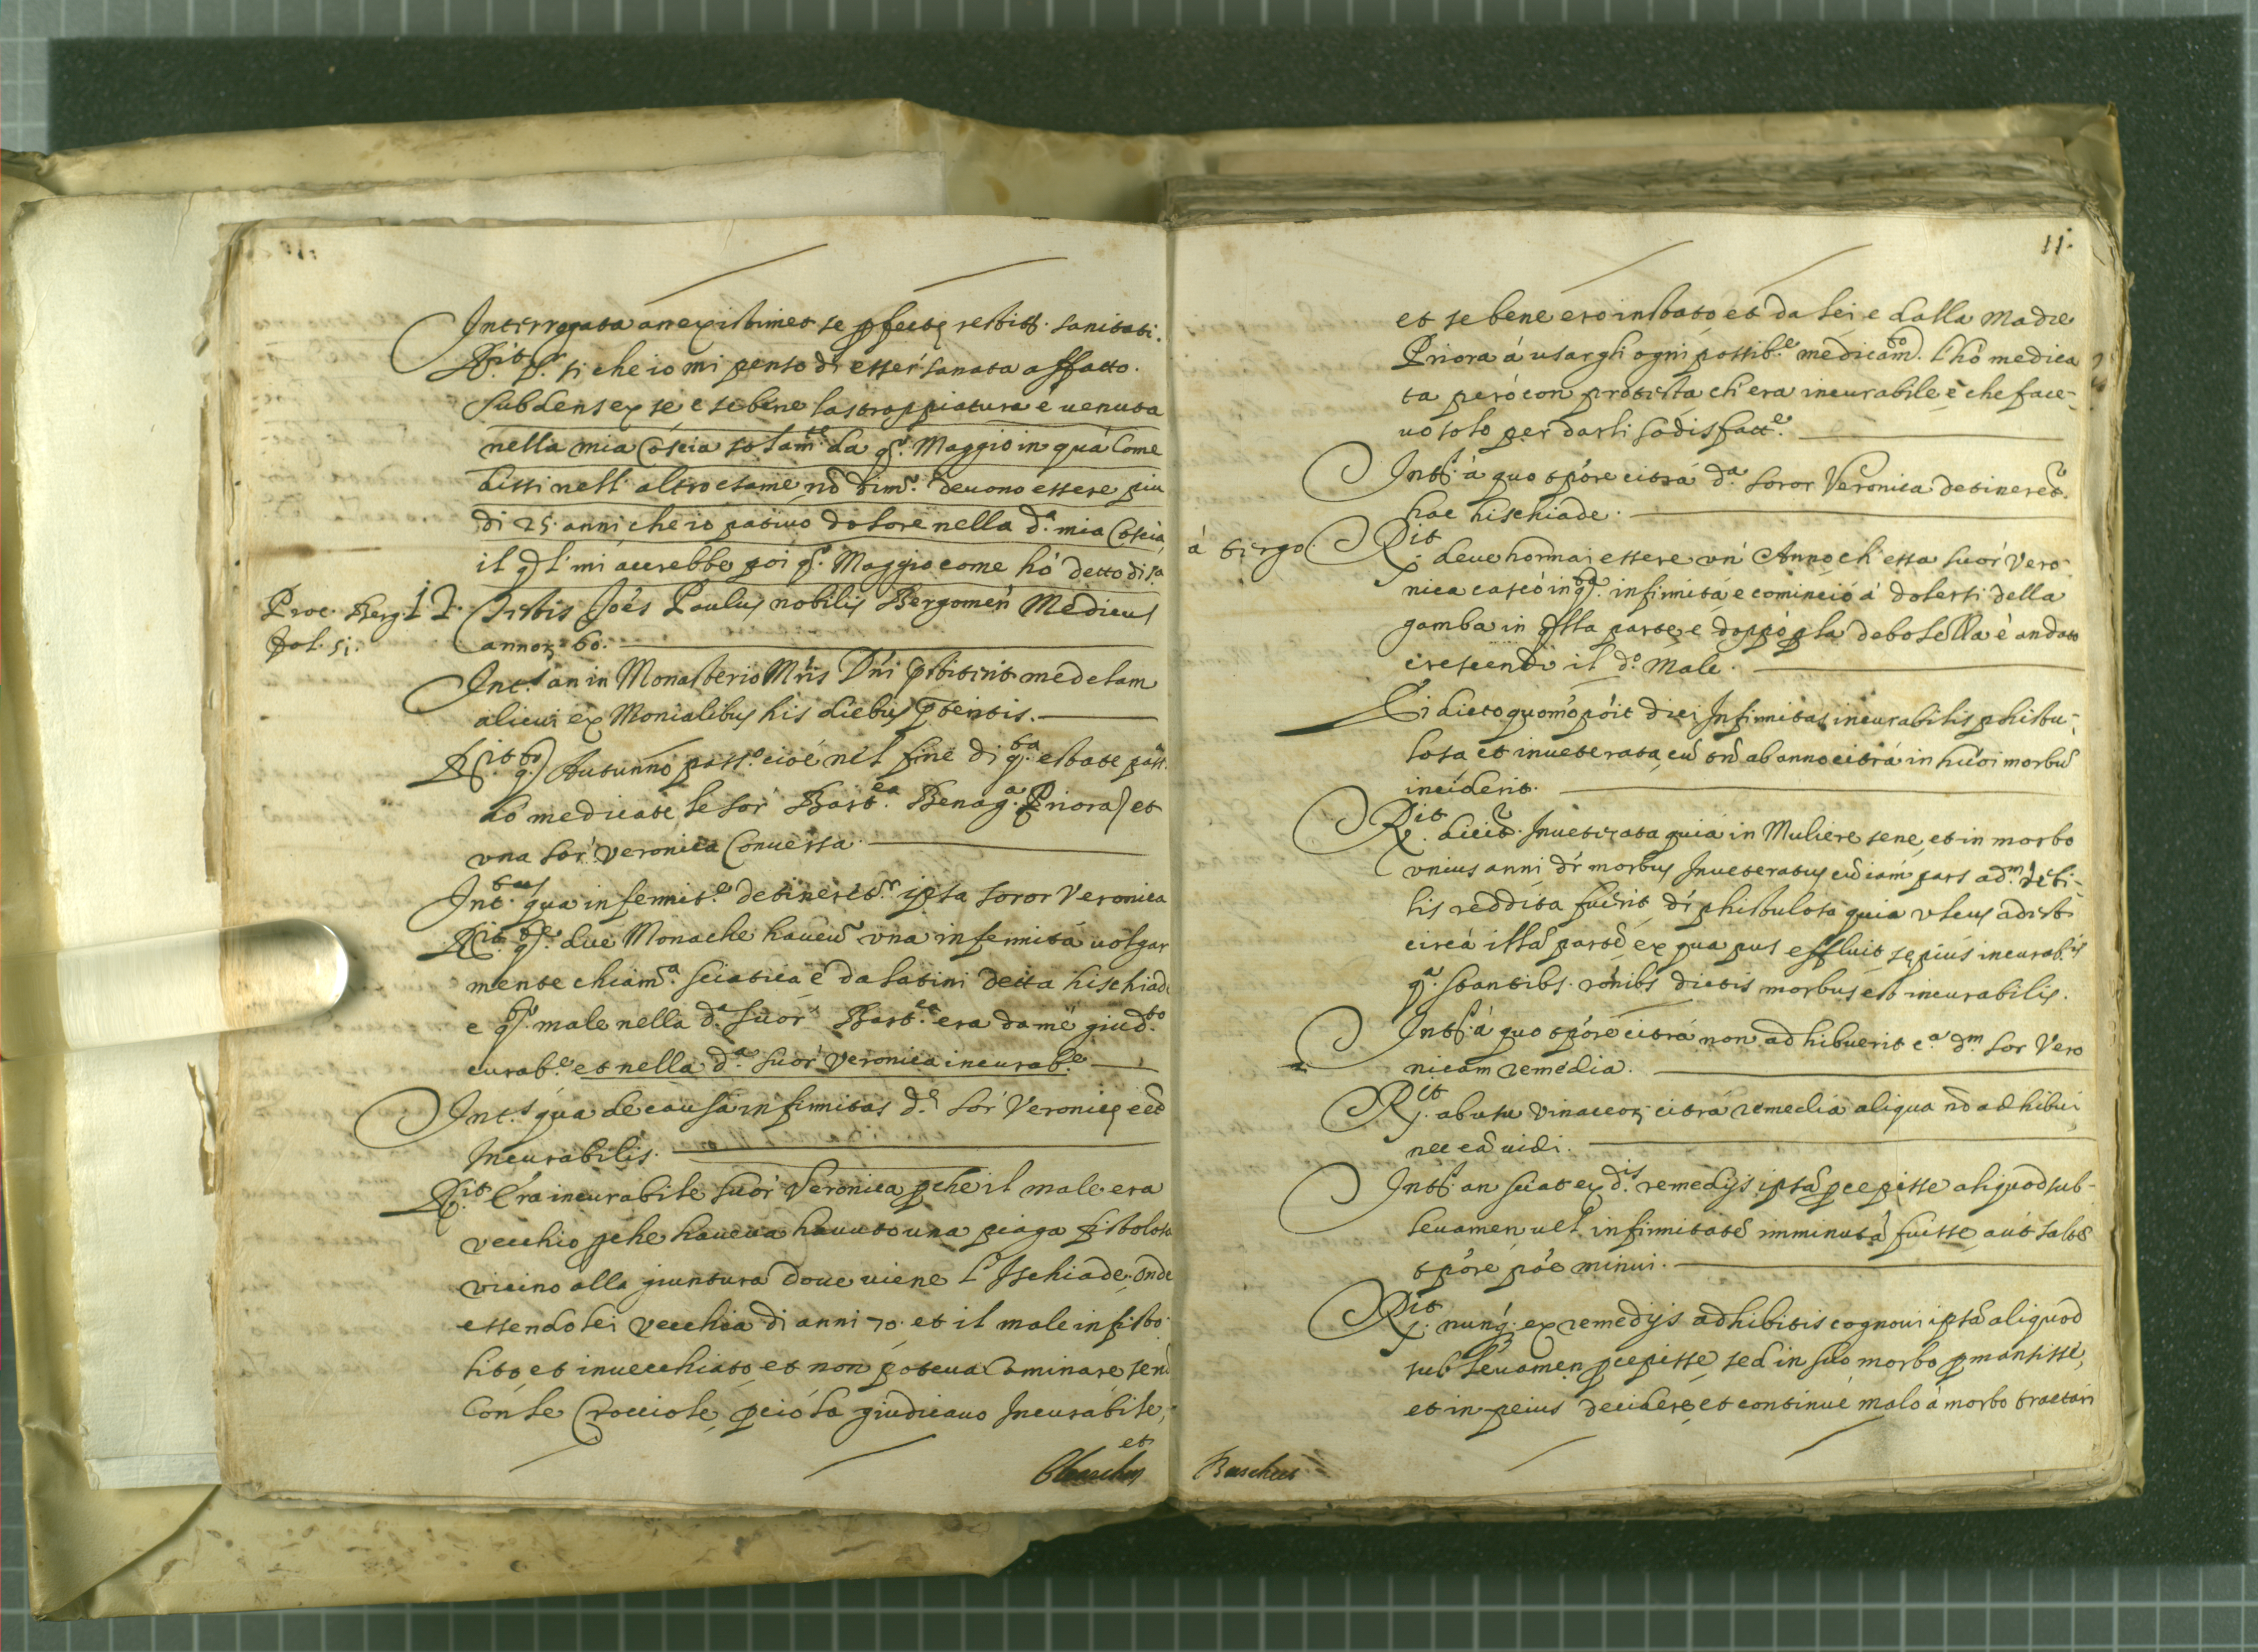 Interrogata an existimet se pfecte restit. sanitati.
Rit. sr. si che io mi penso di esser sanata affatto.
Subdens ex se e se bene la stroppiatura è uenuta
nella mia Coscia solamte. da qs. Maggio in quà Come
dissi nell' altro esame, nō dimo. deuono essere piu
di 25. anni che io patiuo dolore nella da. mia Coscia,
il ql mi accrebbe poi qs. Maggio come hò detto di sa
Proc. Berg. 12. Testis Joēs Paulus nobilis Bergomen Medicus
fol. 51. annoꝝ 60.
Int.s an in Monasterio Mris Dni pstiterit medelam
alicui ex Monialibus his diebus pteritis.
Rit. Autunno passo. cioè nel fine di qta. estate pass.
hò medicate le sor Bartea. Benaga. Priora, et
una sor Veronica Conuersa.
Int. qua infermite. detineretr. ipsa soror Veronica
Rit. qste. due Monache haueuō una infermità uolgar
mente chiamaa. sciatica è da latini detta hischiade
e qsto. male nella da. suor Bartea. era da mè giudto.
curabe. et nella da. suor Veronica incurabe.
Int.s qua de causa infirmitas de. sor Veronicę eēt
Incurabilis.
Rit. Era incurabile suor Veronica pche il male era
vecchio pche haueua hauuto una piaga fistolosa
vicino alla giuntura doue uiene l'Ischiade, onde
essendo lei vecchia di anni 70. et il male infisto-
lito, et inuecchiato, et non poteua Caminare senō
Con le Crocciole, pciò la giudicauo Incurabile,
et
11.
et se bene ero instato et da lei e dalla Madre
Priora à usargli ogni possibe. medicamto. l'hò medica
ta però con protesta ch'era incurabile e che face-
uo solo per darli sodisfatte.
Ints. à quo tpore citrà da. soror Veronica detineretr.
hac hischiade.
à tergo. Rit. deue hormai essere un' Anno ch' essa suor Vero-
nica cascò in qsta. infirmità e cominciò à dolersi della
gamba in qlla parte, e doppò p la debolella è andato
crescendo il do. Male.
Ei dicto quomo pōit dici Infirmitas incurabilis phistu-
losa et inueterata, cū tn̄ ab anno citrà in hūoi morbū
inciderit.
Rit. dicitr. Inueterata quia in Muliere sene, et in morbo
unius anni dr morbus Inueteratus cū iam pars adm. debi-
lis reddita fuerit, dr phistulosa quia ulcus adest
circà illā partē ex qua pus effluit sępius incurabis.
qa. stantibs. rōnibs dictis morbus est incurabilis.
Ints. à quo tpore citrà non adhibuerit ca. dm. sor Vero
nicam remedia.
Rit. ab usu vinaceoꝝ citrà remedia aliqua nō adhibui,
nec eā uidi.
Ints. an sciat ex dis. remedijs ipsā pcepisse aliquod sub-
leuamen uel infirmitatē imminutā fuisse, aut saltē
tpore pōe minui.
Rit. nunq. ex remedijs adhibitis cognoui ipsā aliquod
subleuamen pcepisse, sed in suo morbo pmansisse,
et in peius decidere, et continuè malo à morbo tractari